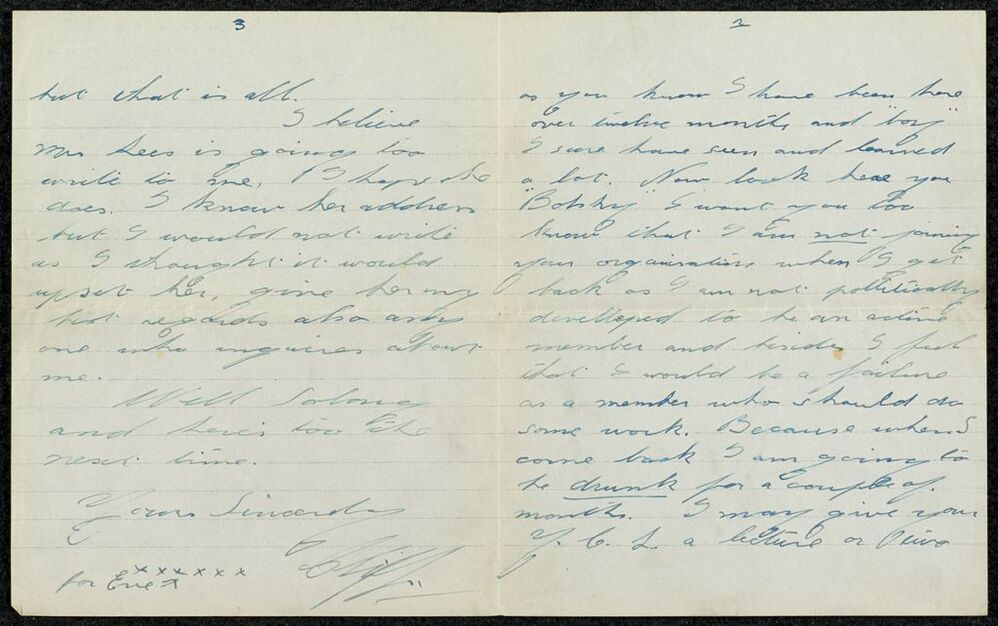 2
as you know I have been here
over twelve months and "boy"
I sure have seen and learned
a lot. Now look here you
"Bolshy" I want you too
know that I am not joining
your organisation when I get
back as I am not politically
developed to be an active
member and besides I feel
that I would be a failure
as a member who should do
some work. Because when I
come back I am going to
be drunk for a couple of
months. I may give your
Y. C. L a lecture or
3
but that is all.
I believe
Mrs Lees is going too
write to me, I hope she
does. I know her address
but I would not write
as I thought it would
upset her, give her my
best regards also any
one who inquires about
me.
Well Solong
and here's too the
next time.
Yours Sincerely
Cliff
xxxxxxx
for